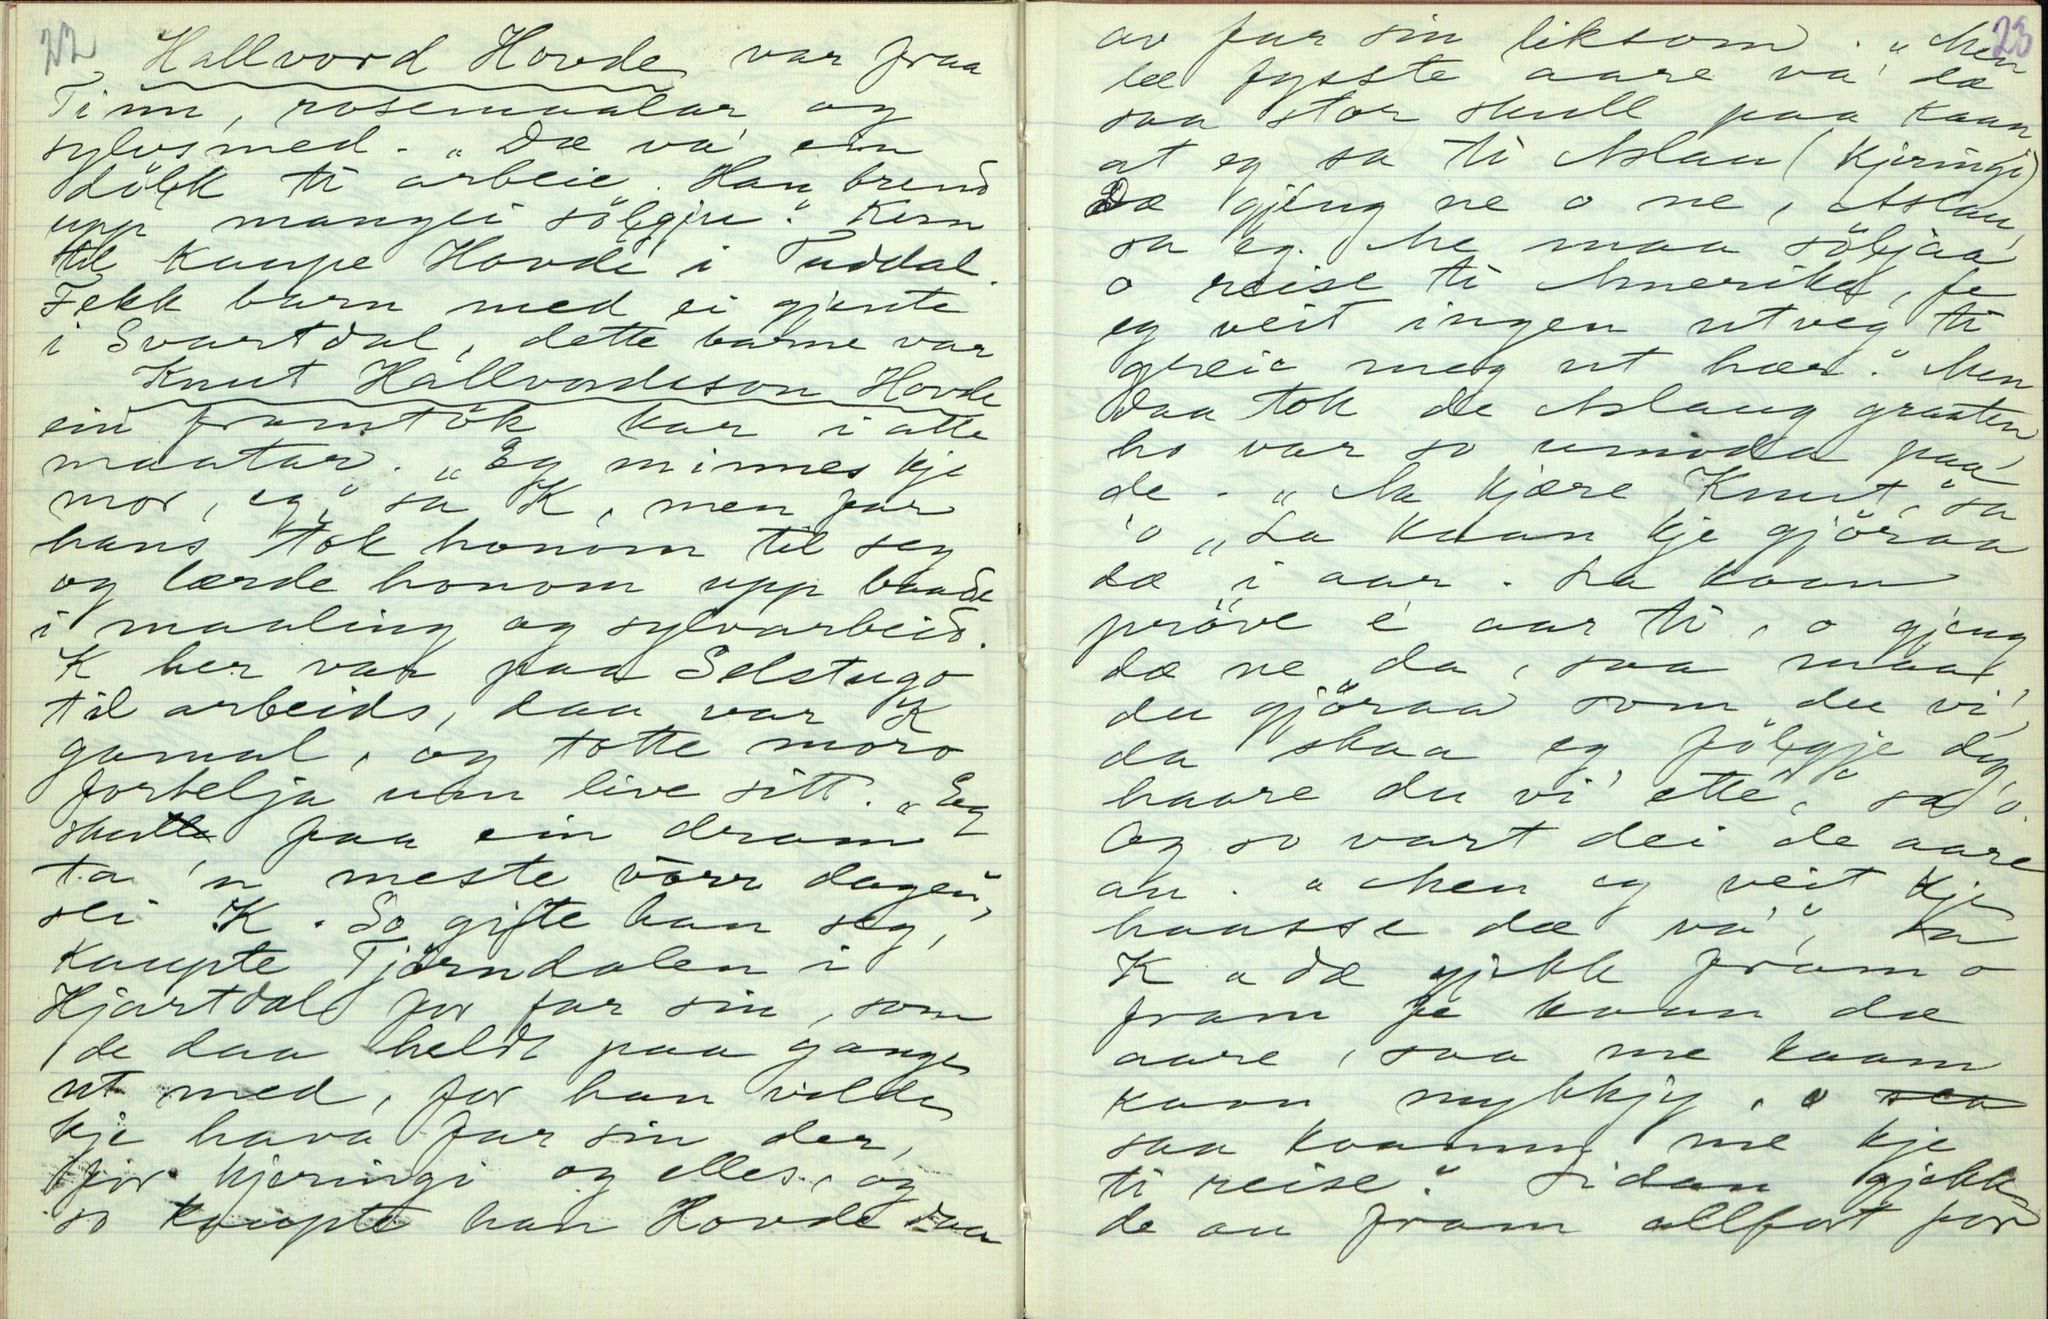 22
Hallvord Hovde var fraa
Tinn, rosemaalar og
sylvsmed. „Dæ va' ein
dölk ti arbeie. Han brend
upp mangei sölgju." Kom
til kaupe Hovde i Tuddal.
Fekk barn med ei gjente
i Svartdal, dette barne var
Knut Hallvordsson Hovde
ein framtök kar i alle
maatar. „Eg minnes kje
mor, eg," sa K, men far
hans tok honom til seg
og lærde honom upp baade
i maaling og sylvarbeid.
K her var paa Selstugo
til arbeids, daa var K
gamal, og totte moro
fortelja um live sitt. „Eg
skulle faa ein dram
ta 'n meste vörr dagen",
sei K. So gifte han seg,
kaupte Tjörndalen i
Hjartdal for far sin, som
de daa heldt paa gange
ut med, for han vilde
kje hava far sin der,
for kjeringi og elles, og
so kaupte han Hovde daa
23
av far sin liksom. „Men
dæ fysste aare va' dæ
saa stor skull paa kaan
at eg sa ti Aslau (kjeringi)
Dæ gjeng ne o ne, Aslau,
sa eg. Me maa söljaa
o reise ti Amerika, fe
eg veit ingen utveg ti
greie meg ut hær." Men
daa tok de Aslaug graaten
ho var so umoda paa
de. „Aa kjære Knut," sa
'o „La kaan kje gjöraa
dæ i aar. La kaan
pröve e' aar ti, o gjeng
dæ ne da, saa maa
du gjöraa som du vi',
da skaa eg fölgje deg
haare du vi' ette", sa 'o.
Og so vart dei de aare
an. „Men eg veit kje
haasse dæ va'", sa
K „dæ gjekk fram o
fram fe kaan dæ
aare, saa me kaam
kaan mykkjy, o saa
saa kaamm me kje
ti reise." Sidan gjekk
de au fram allfort for